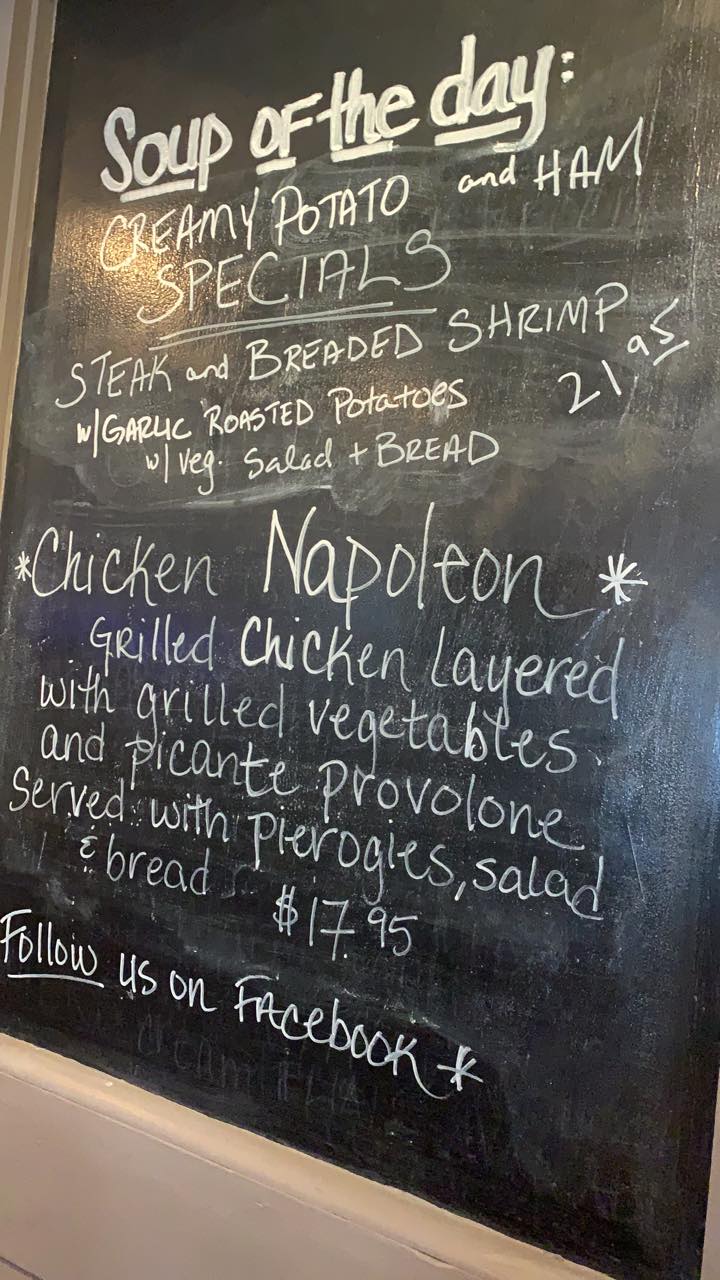 Soup of the day:
CREAMY POTATO and HAM
SPECIALS
STEAK and BREADED SHRIMP
w/GARLIC ROASTED Potatoes 21.95
w/ veg. Salad + BREAD
*Chicken Napoleon*
Grilled Chicken Layered
with grilled vegetables
and picante provolone
Served with pierogies, salad
& bread $17.95
Follow us on Facebook *